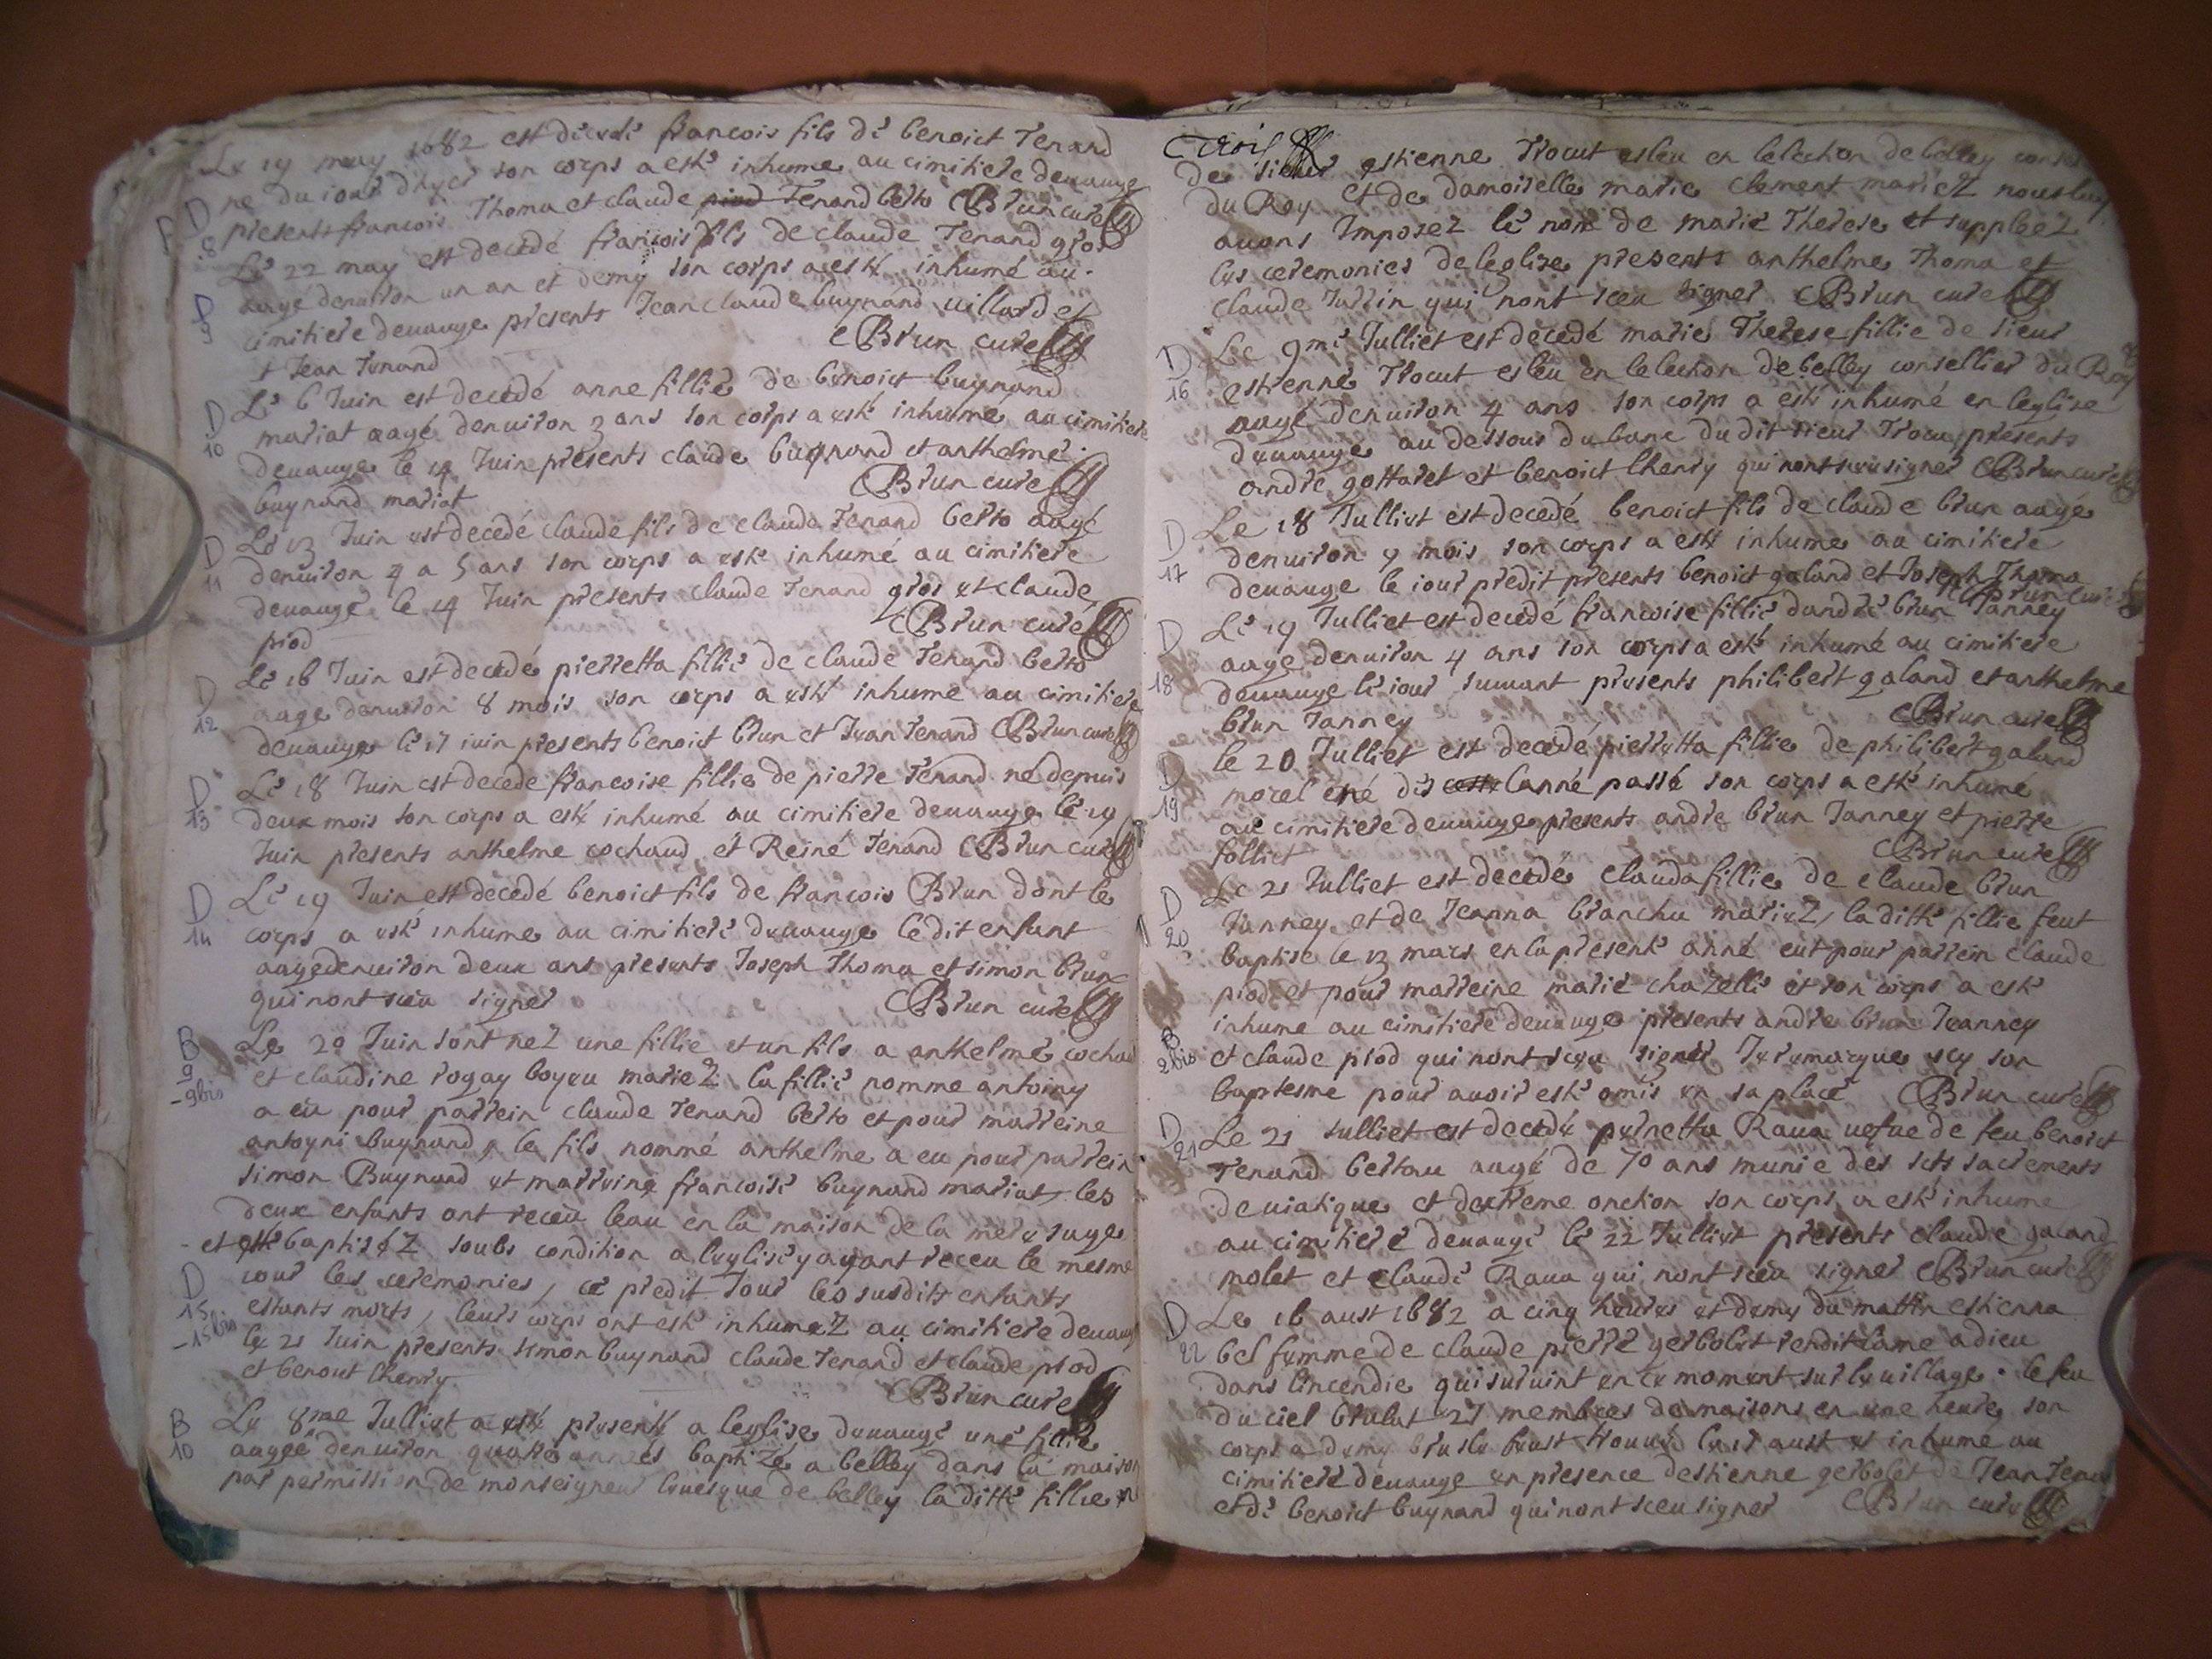 Le 19 may 1682 est decede francois fils de benoict Tenand
ne du iour dhyer son corps a esté inhume au cimitiere deuauge
presents francois Thoma et claude piod Tenand berto Brun curé
D
8
Le 22 may est decedé francois fils de claude Tenand gros
D
9
augé denuiron un an et demy son corps a esté inhumé au
cimitiere deuauge presents Jean claude buynand uillard et
+ Jean Tenand Brun curé
D
10
Le 6 Juin est decedé anne fillie de benoict buynand
mariat augé denuiron 3 ans son corps a esté inhume au cimitiere
deuauge le 14 Juin presents claude buynand et anthelme
buynand mariat Brun curé
D
11
Le 13 Juin est decedé claude fils de claude Tenand berto augé
denuiron 4 a 5 ans son corps a esté inhumé au cimitiere
deuauge le 14 Juin presents claude Tenand gros et claude
piod Brun curé
D
12
Le 16 Juin est decedé pierretta fillie de claude Tenand berto
auge denuiron 8 mois son corps a esté inhume au cimitiere
deuauge le 17 iuin presents benoict brun et Jean Tenand Brun curé
D
13
Le 18 Juin est decede francoise fillie de pierre Tenand ne depuis
deux mois son corps a esté inhumé au cimitiere deuauge le 19
Juin presents anthelme cochaud et Reiné Tenand Brun curé
D
14
Le 19 Juin est decedé benoict fils de francois Brun dont le
corps a esté inhume au cimitiere deuauge ledit enfant
augé denuiron deux ans presents Joseph Thoma et simon brun
qui nont sceu signer Brun curé
B
9
-9bis
Le 20 Juin sont nez une fillie et un fils a anthelme cochau
et claudine rogay boyeu mariez la fillie nomme antoiny
a eu pour parrein claude Tenand berto et pour marreine
antoyni buynand, le fils nommé anthelme a eu pour parrein
simon Buynand et marreine francoise buynand mariat les
deux enfants ont receu leau en la maison de la mere sage
et esté baptisez soubs condition a leglise y ayant receu le mesme
D
15
-15bis
iour les ceremonies, ce predit Jour les susdits enfants
estants morts, leurs corps ont esté inhumez au cimitiere deuauge
le 21 Juin presents simon buynand claude Tenand et claude piod
et benoict lhenry Brun curé
B
10
Le 8me Julliet a esté presenté a leglise deuauge une fillie
augée denuiron quatre années baptizée a belley dans la maison
par permission de monseigneur leuesque de belley la ditte fillie
trois
de sieur estienne Trocut esleu en lelection de belley conse
du Roy et de damoiselle marie clement mariez nous luy
auons Imposez le nom de marie Therese et suppleez
les ceremonies de leglise presents anthelme Thoma et
claude Jullin qui nont sceu signer Brun curé
D
16
Le 9me Julliet est decedé marie Therese fillie de sieur
estienne Trocut esleu en lelection de belley consellier du Roy
augé denuiron 4 ans son corps a esté inhumé en leglise
deuauge au dessous du banc du dit sieur Trocu presents
andre gottaret et benoict lhenry qui nont sceu signer Brun curé
D
17
Le 18 Julliet est decedé benoict fils de claude brun augé
denuiron 9 mois son corps a esté inhume au cimitiere
deuauge le iour predit presents benoict galand et Joseph Thoma
Brun curé
D
18
Le 19 Julliet est decedé francoise fillie dandre brun Janney
auge denuiron 4 ans son corps a esté inhumé au cimitiere
deuauge le iour suiuant presents philibert galand et anthelme
brun Janney Brun curé
D
19
le 20 Julliet est decedé pierretta fillie de philibert galand
morel né dés lanné passé son corps a esté inhumé
au cimitiere deuauge presents andre brun Janney et pierre
folliet Brun curé
D
20
Le 21 Julliet est decedé clauda fillie de claude brun
Janney et de Jeanna branchu mariez, laditte fillie feut
baptise le 13 mars en la present anné eut pour parrein claude
piod et pour marreine marie chazelle et son corps a esté
inhume au cimitiere deuauge presents andre brun Jeanney
B
2bis
et claude piod qui nont sceu signer Je remarque icy son
baptesme pour auoir esté omis en sa place Brun curé
D
21
Le 21 Julliet est decedé pernetta Raua uefue de feu benoict
Tenand bertau augé de 70 ans munie des scts sacrements
de uiatique et dextreme onction son corps a esté inhume
au cimitiere deuauge le 22 Julliet presents claude galand
molet et claude Raua qui nont sceu signer Brun curé
D
22
Le 16 aust 1682 a cinq heures et demy du mattin estienna
bel femme de claude pierre gerbolet rendit lame a dieu
dans lincendie qui suruint en ce moment sur le uillage. le feu
du ciel brulat 27 membres de maisons en une heure son
corps a demy brusle feust trouué le 17 aust et inhume au
cimitiere deuauge en presence destienne gerbolet de Jean Tenand
et de benoict buynand qui nont sceu signer Brun curé